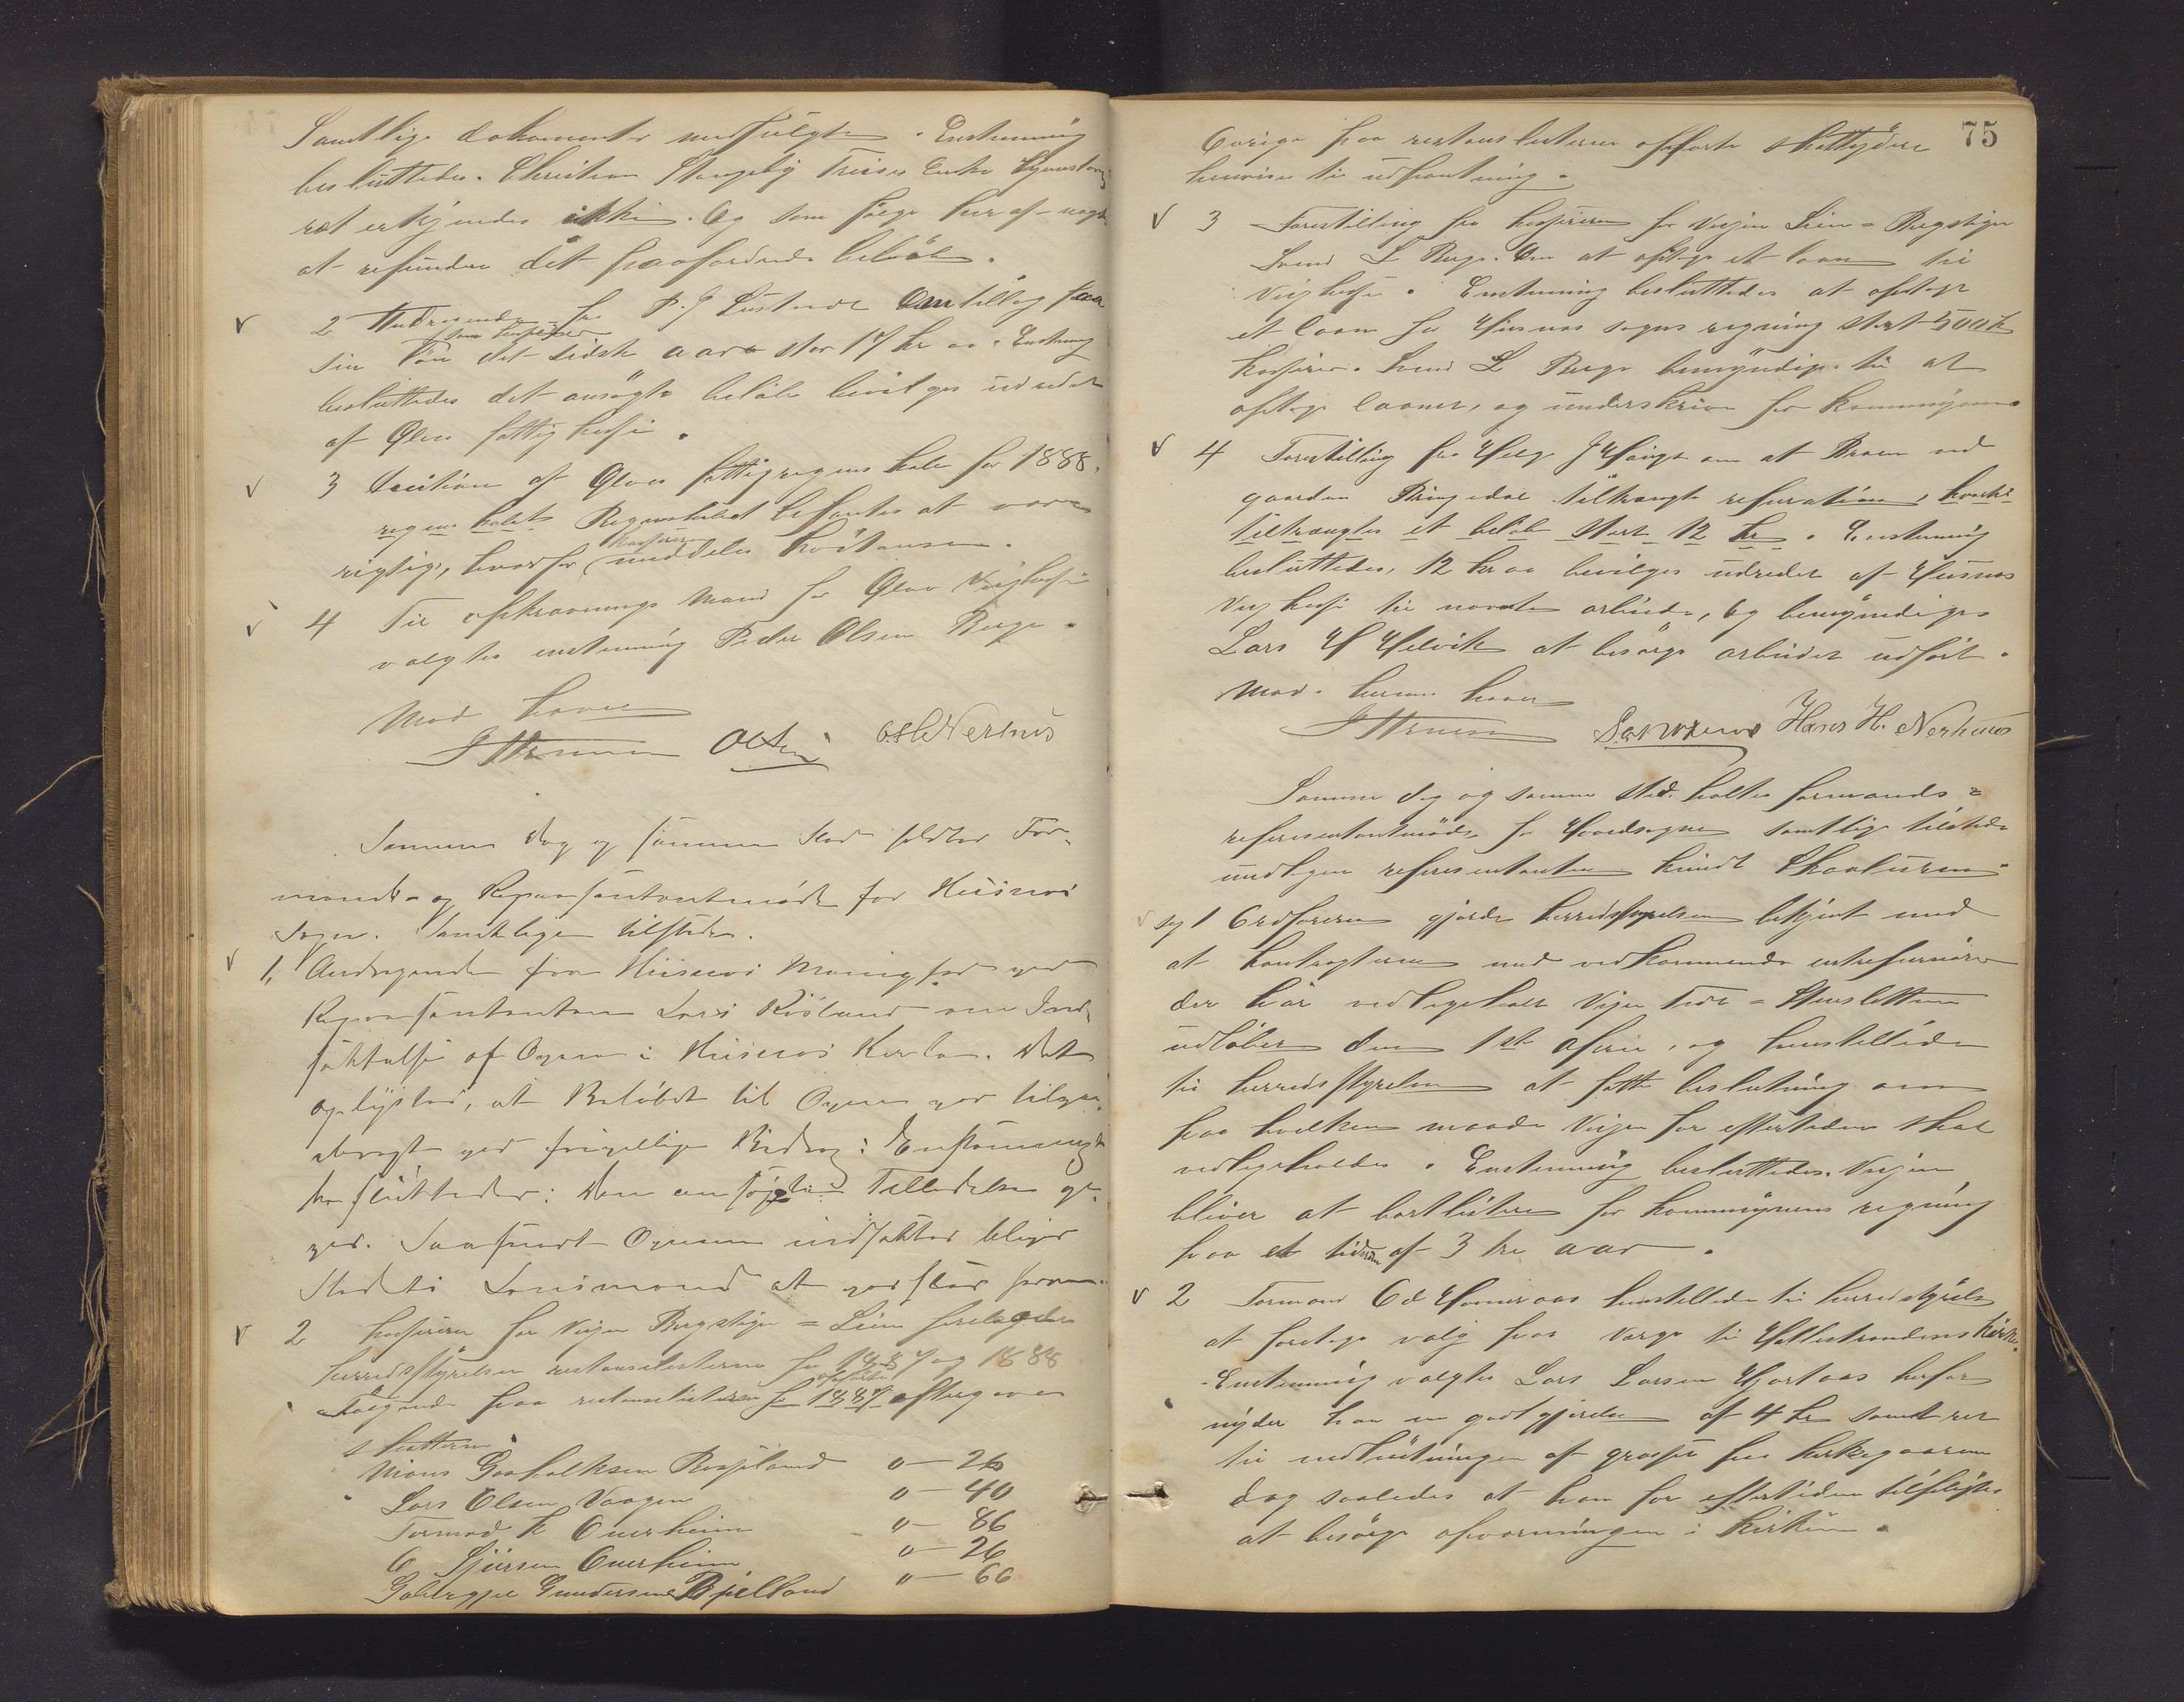 Samtlige dokumenter medfulgte. Enstemmig
besluttedes. Christian Stangeby Trises Enke
ret erkjendes ikke. Og som følge heraf
at refundere det paafordrede beløb.
2 Andragende fra P. J. om tillæg paa
som kasserer
sin løn det sidste aar stor 17 kr oo. Enstemmig
besluttedes det ansøgte beløb bevilges udredet
af Ølens fattigkasse.
3 Decition af Ølens fattigregnskab for 1888.
regnskabet Regnskabet befantes at være
kassereren
rigtig, hvorfor meddeles kvitanse.
4 Til opkrævnings Mand for Ølen Veikasse
valgtes enstemmig Peder Olsen Berge.
Mod hæver
O H Nerhus
Samme Dag og samme Sted holdtes For-
mands- og Repræsentantmøde for Husnes
Sogn. Samtlige tilstede.
1, Andragende fra Husnes Menighed ved
Repræsentanten Lars Røsland om Ind-
sættelse af Ovne i Husnes Kirke. Det
oplystes, at Beløbet til Ovne var tilveie-
bragt ved frivillige Bidrag: Enstemmigt
besluttedes: Den ansøgte Tilladelse gi-
ves. Saafremt Ovnene indsættes bliver
Stedets Lensmand at
2 Kasserer for Veien Bergstigen = Lien forelagde
herredsstyrelsen restanselisterne for 1887 og 1888
opførte
Følgende paa restanselisterne for 1887 eftergives
skatterne
Mons Rafsland " — 26
Lars Olsen Vaagen " — 40
Tormod K Overheim " — 86
O Sjursen Overheim " — 26
Gundersen Bjelland " — 66
75
Øvrige paa restanselisterne opførte skatydere
henvises til udpantning.
3 Forestilling fra kassereren for Veien Lien = Bergstigen
Svend L Berge. Om at optage et laan til
Veikassen. Enstemmig besluttedes at optage
et laan for Husnes sogns regning stort 500 kr
Kasserer Svend L Berge bemyndiges til at
optage laanet, og underskrive for kommunen
4 Forestilling fra Helge J Høinge om at Broen ved
gaarden Ringedal tiltrængte reparation, hvortil
tiltrængtes et beløb stort 12 kr. Enstemmig
besluttedes, 12 kr oo bevilges udredet af Husnes
Veikasse til nævnte arbeide, og bemyndiges
Lars H Helvik at besørge arbeidet udført.
Mod herom hæver
Hans H. Nerhus
Samme dag og samme sted holtes formands =
repræsentantmøde for Hovedsognet samtlige tilstede
undtagen repræsentanten Knudt Skaaluren
Sag 1 Ordføreren gjorde herredsstyrelsen bekjent med
at kontragterne med vedkommende entreprenører
der har vedligeholdt Veien = Stensletten
udløber den 1ste April, og henstillede
til herredsstyrelsen at fatte beslutning om
paa hvilken maade Veien for eftertiden skal
vedligeholdes. Enstemmig besluttedes. Veien
bliver at bortlisitere for kommunens regning
paa et tidsrum af 3 tre aar.
2 Formand Od Hommeraas henstillede til herredsstyrelsen
at foretage valg paa Værge til Hatlestrandens kirke.
Enstemmig valgtes Lars Larsen Hjortaas herfor
nyder han en godtgjørelse af 4 kr samt ret
til indhøstningen af græsset paa kirkegaarden
dog saaledes at han for eftertiden tilpligtes
at besørge opvarmingen i kirken.